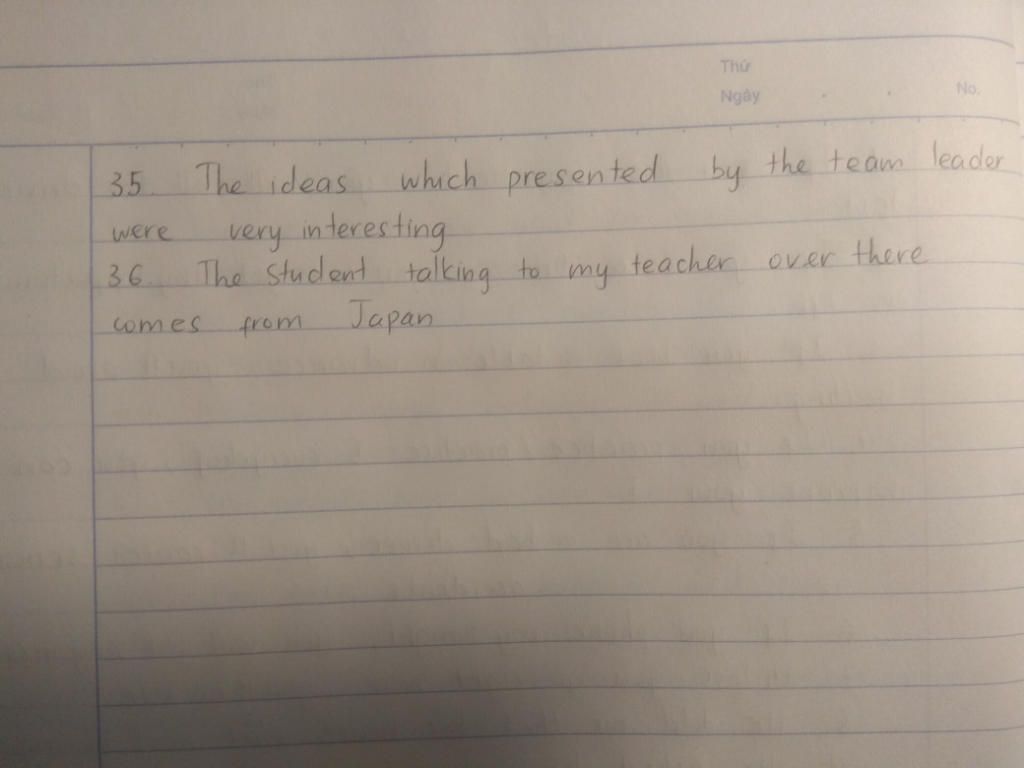 Thứ
Ngày . . No.
35. The ideas which presented by the team leader
were very interesting
36. The Student talking to my teacher over there
comes from Japan